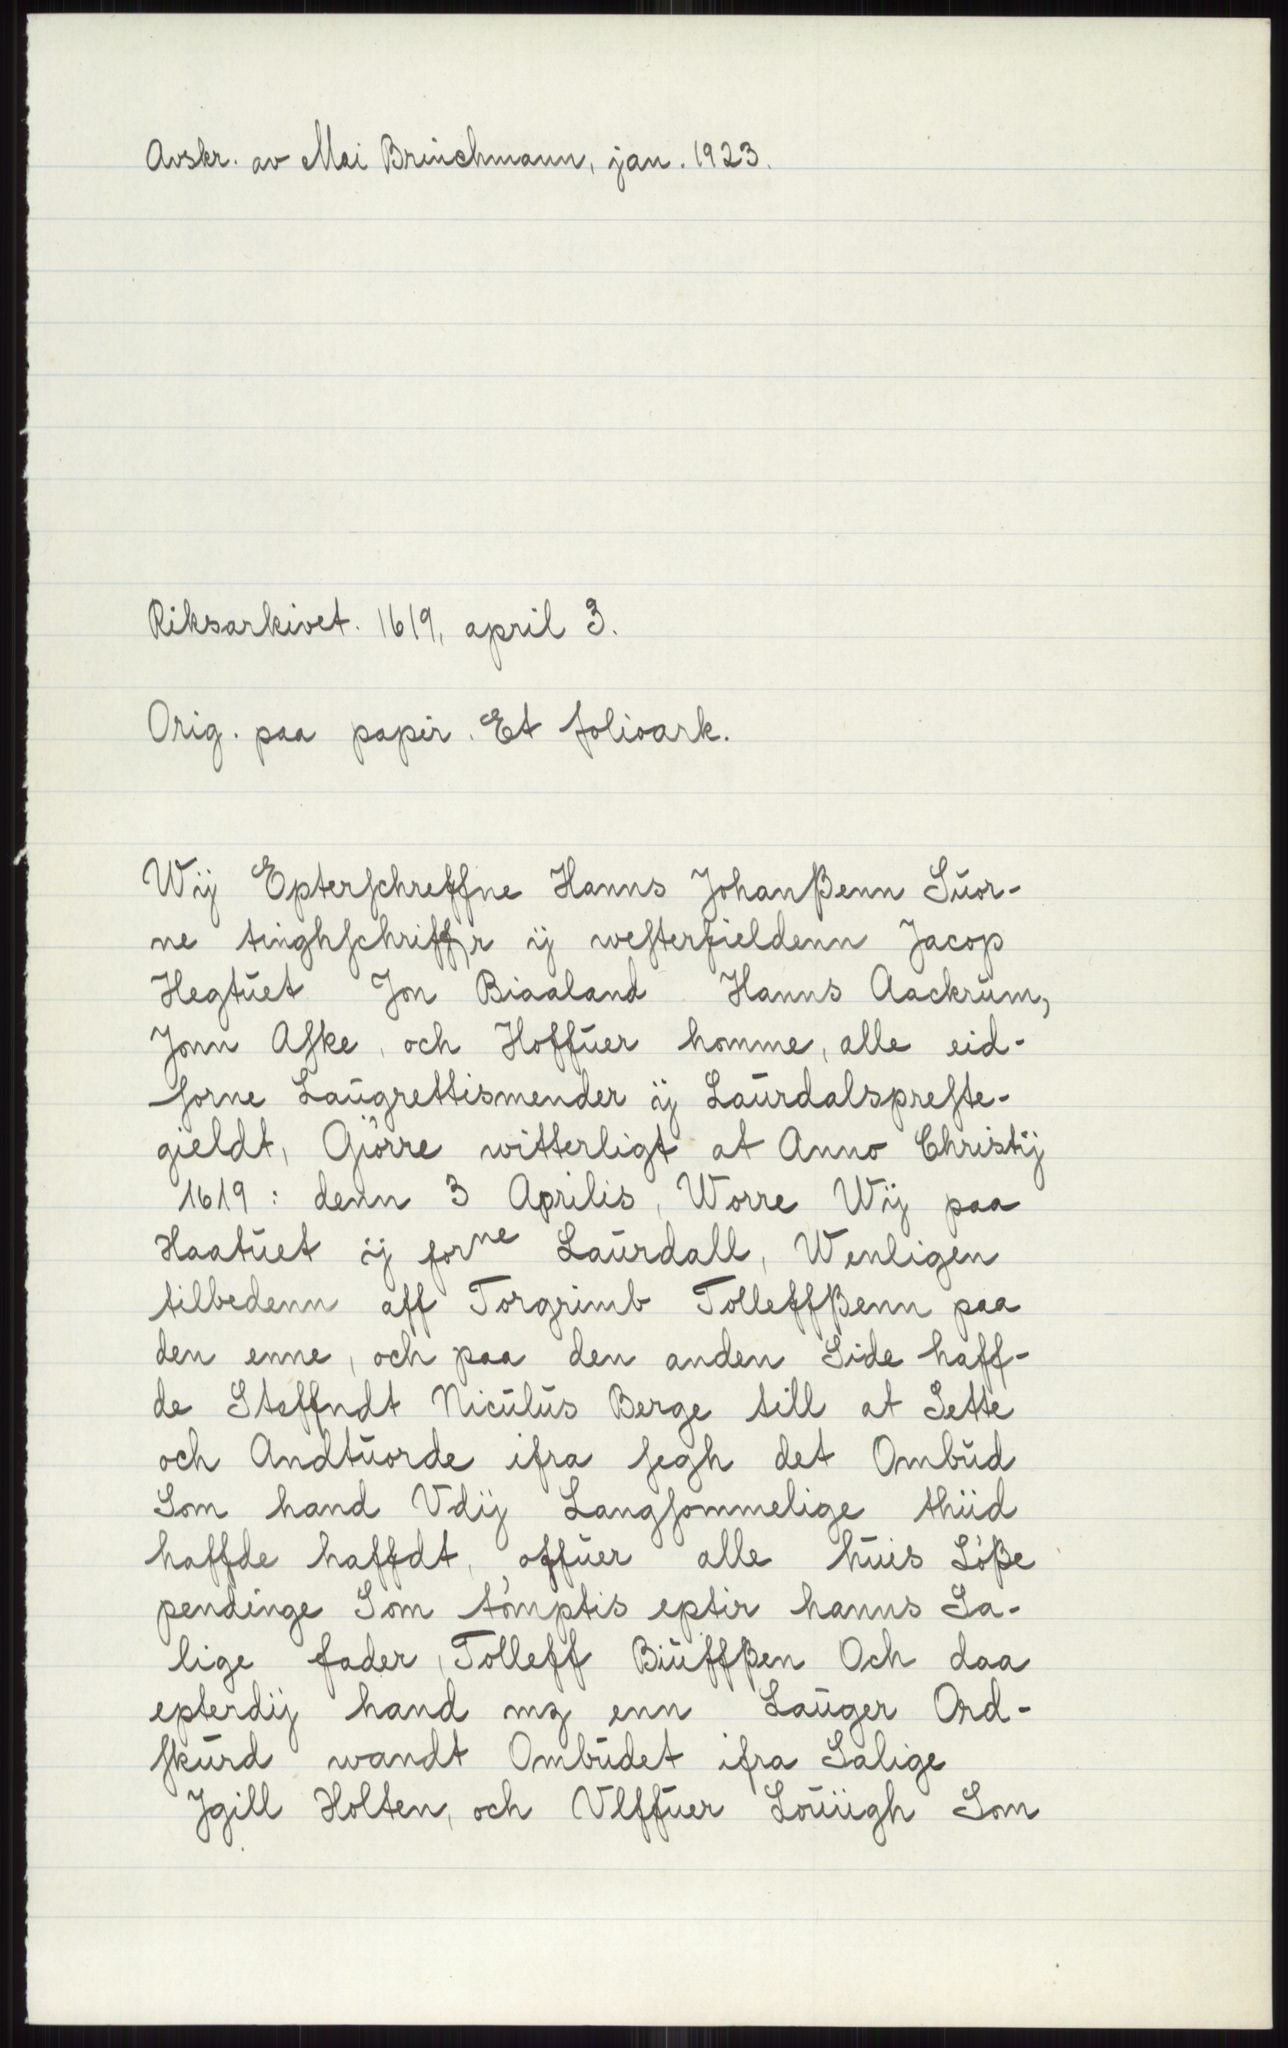 Avskr. av Mai Brinchmann, jan. 1923.
Riksarkivet. 1619, april 3.
Orig. paa papir. Et folioark.
Wij Epterschreffne Hanns Johanßenn Suor-
ne tinghschriffr ij westerfieldenn Jacop
Hegtuet Jon Biaaland Hanns Aackrum,
Jonn Aske, och Hoffuer homme, alle eid-
sorne Laugrettismender ij Laurdalspreste-
gieldt, Giörre witterligt at Anno Christij
1619: denn 3 Aprilis, Worre Wij paa
Haatuet ij forne Laurdall, Wenligen
tilbedenn aff Torgrimb Tolleffßenn paa
den enne, och paa den anden Side haff-
de Steffndt Niculus Berge till at Sette
och Andtuorde ifra segh det Ombud
Som hand Vdij Langsommelige thiid
haffde haffdt, offuer alle huis Löße
pendinge Som tömptis eptir hanns Sa-
lige fader, Tolleff Biuffßen Och daa
epterdij hand mz enn Lauger Ord-
skurd wandt Ombudet ifra Salige
Jgill Holten, och Vlffuer Louiigh Som